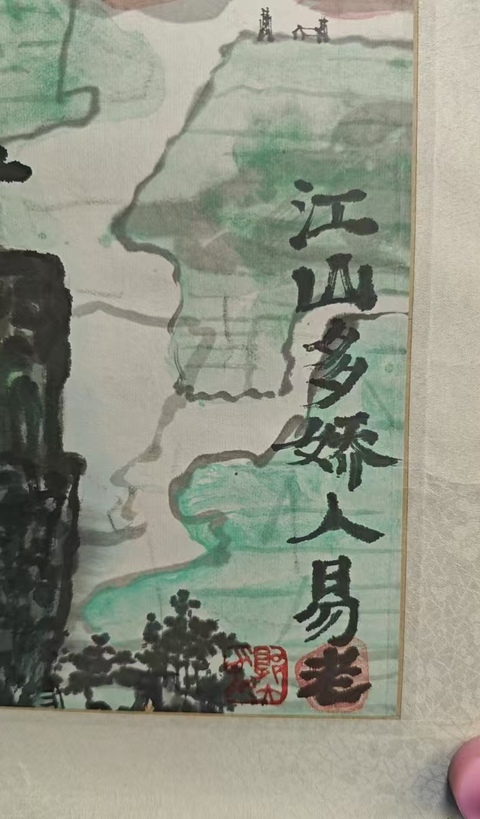 江山多娇人易老